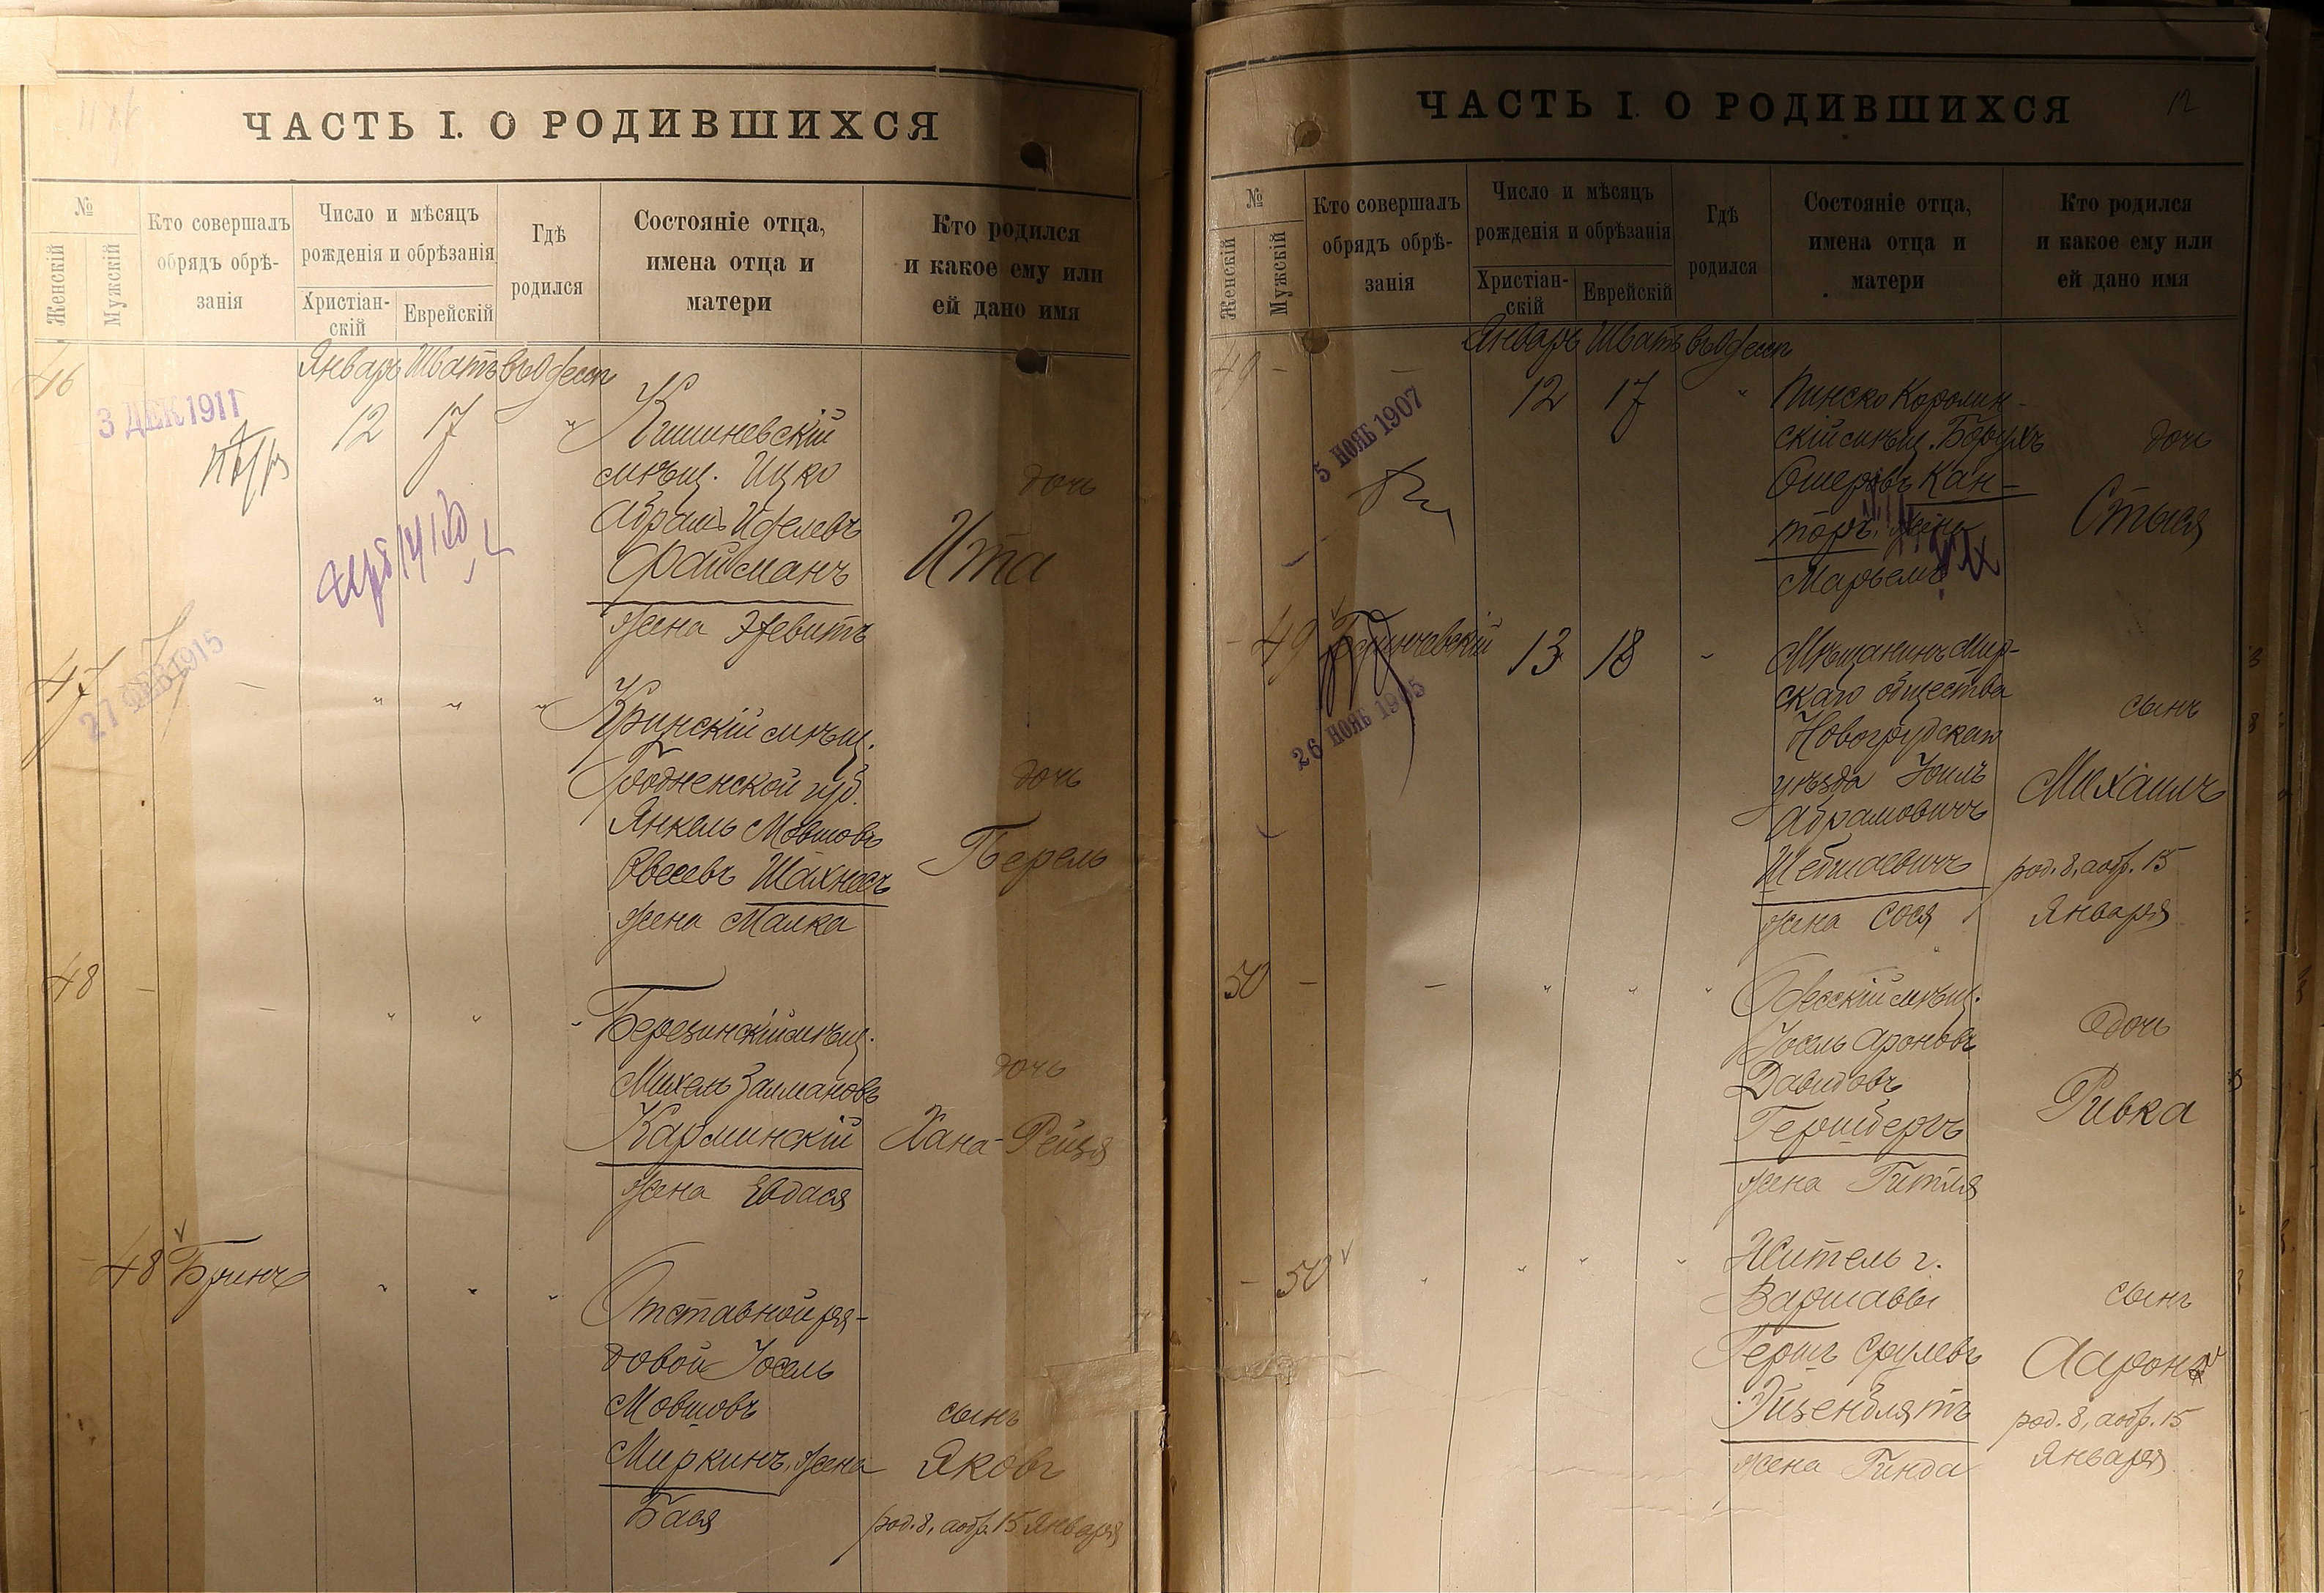 ЧАСТЬ I. О РОДИВШИХСЯ
№
Женскій
Мужскій
Кто совершалъ
обрядъ обрѣ-
занія
Число и мѣсяцъ
рожденія и обрѣзанія
Христіан-
скій
Еврейскій
Гдѣ
родился
Состояніе отца,
имена отца и
матери
Кто родился
и какое ему или
ей дано имя
Январь Шватъ въ Одессѣ
46
3 ДЕК 1911
12 17 "
Кишиневскій
мѣщ. Ицко
Абрамъ Иделевъ
Файсманъ
жена
дочь
Ита
47
27 ФЕВ 1915
- " " "
Кринскій мѣщ.
Гродненской губ.
Янкель Мовшовъ
Шахнесъ
жена Малка
дочь
Перель
48 - - " " "
Березинскій мѣщ.
Михель Залмановъ
Карминскій
жена
дочь
Хана-Рейзя
- 48 Бринъ " " "
Отставной ря-
довой Іосель
Мовшовъ
Миркинъ, жена
Бася
сынъ
Яковъ
род. 8, а обр. 15 Января
ЧАСТЬ I. О РОДИВШИХСЯ
12
№
Женскій
Мужскій
Кто совершалъ
обрядъ обрѣ-
занія
Число и мѣсяцъ
рожденія и обрѣзанія
Христіан-
скій
Еврейскій
Гдѣ
родился
Состояніе отца,
имена отца и
матери
Кто родился
и какое ему или
ей дано имя
Январь Шватъ въ Одессѣ
49 - -
5 НОЯБ 1907
12 17 "
Пинско Каролин-
скій мѣщ. Борухъ
Ошеровъ Кан-
торъ, жена
Марьемъ
дочь
Стыся
- 49
26 НОЯБ 1905
13 18 "
Мѣщанинъ Мир-
скаго общества
Новогрудскаго
уѣзда Іоилъ
Абрамовичъ
жена Сося
сынъ
Михаилъ
род. 8, а обр. 15
Января
50 - - " " "
Одесскій мѣщ.
Іосель Ароновъ
Давидовъ
Гершбергъ
жена Гитля
дочь
Ривка
- 50 " " " "
Житель г.
Варшавы
Гершъ Срулевъ
Эйзенблятъ
жена Гинда
сынъ
Ааронъ
род. 8, а обр. 15
Января